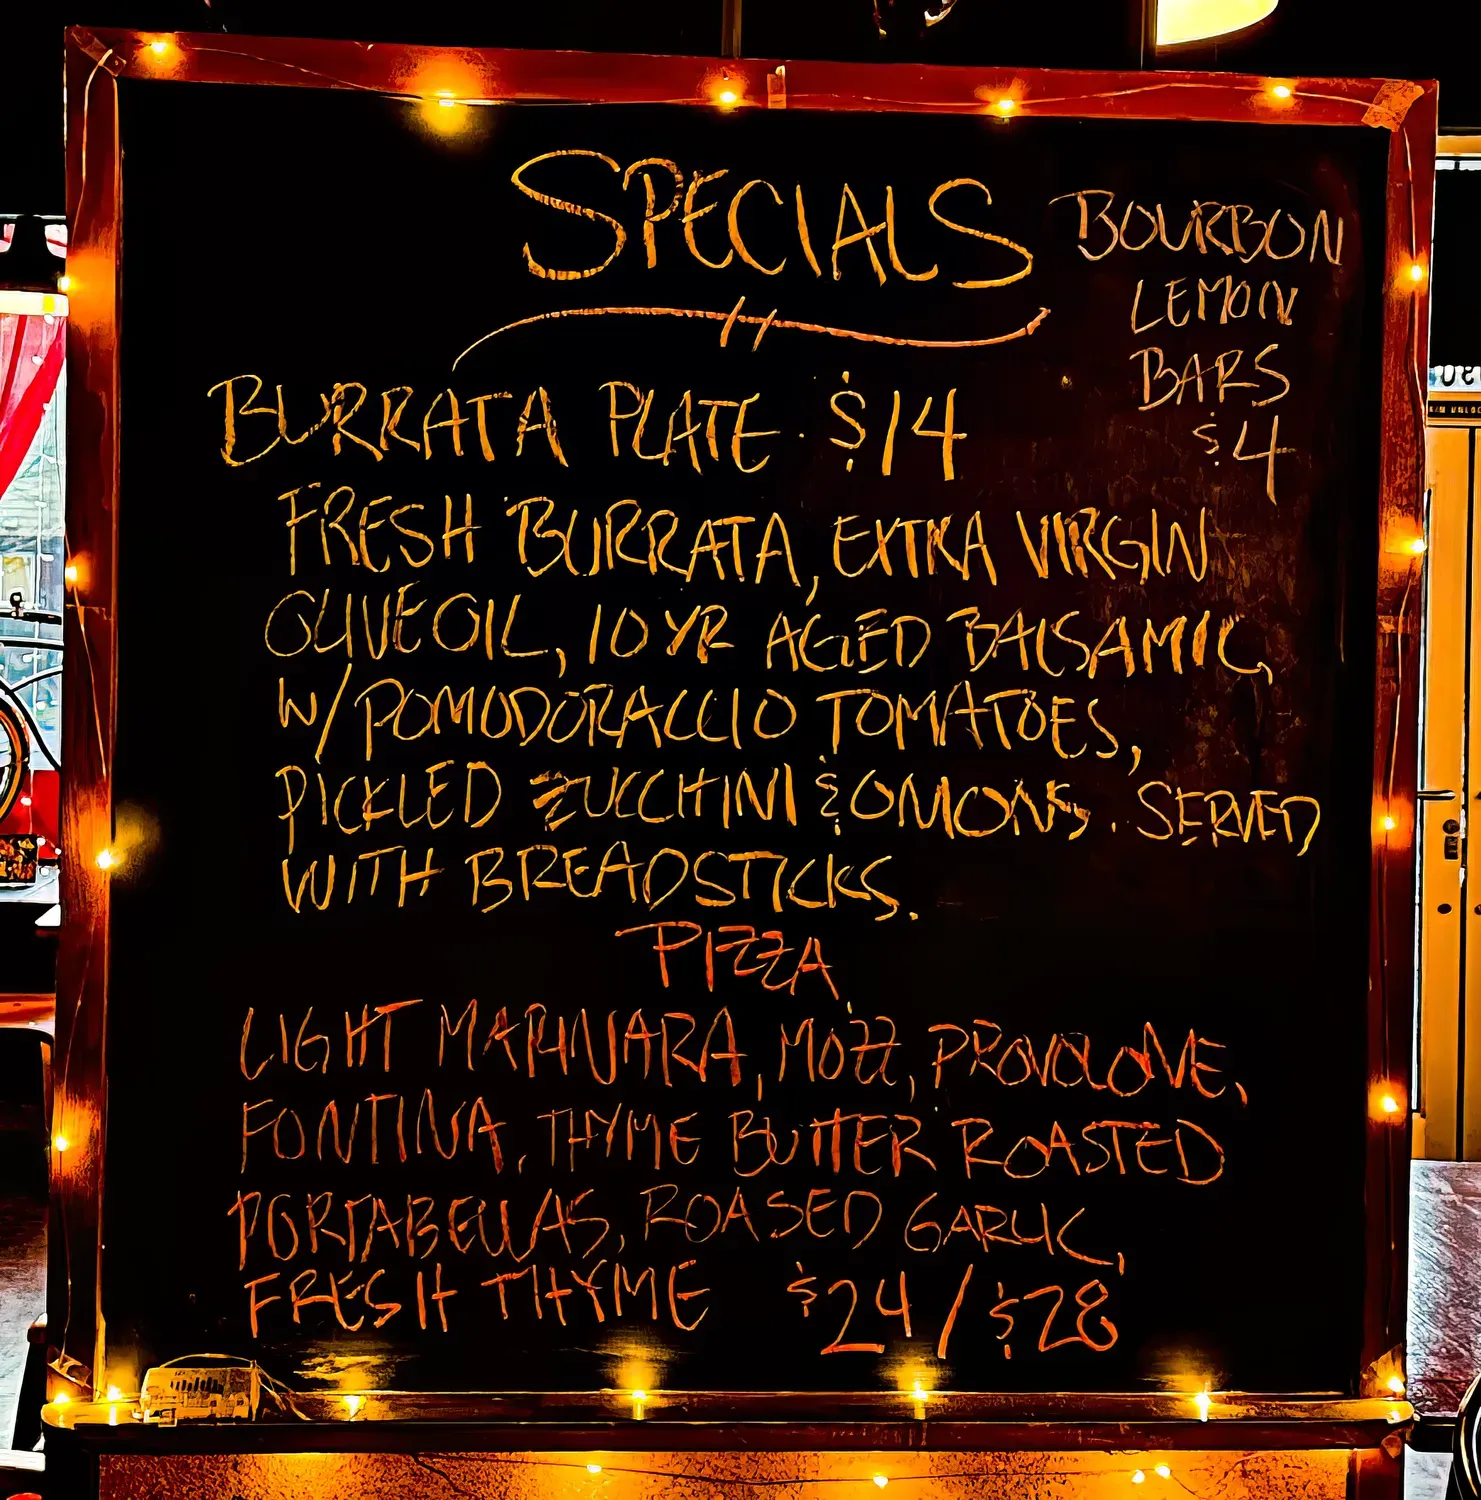 SPECIALS
BOURBON
LEMON
BARS
$4
BURRATA PLATE $14
FRESH BURRATA, EXTRA VIRGIN
OLIVE OIL, 10 YR AGED BALSAMIC,
W/ POMODORACCIO TOMATOES,
PICKLED ZUCCHINI & ONIONS. SERVED
WITH BREADSTICKS.
PIZZA
LIGHT MARINARA, MOZZ, PROVOLONE,
FONTINA, THYME BUTTER ROASTED
PORTABELLAS, ROASED GARLIC,
FRESH THYME $24/$28